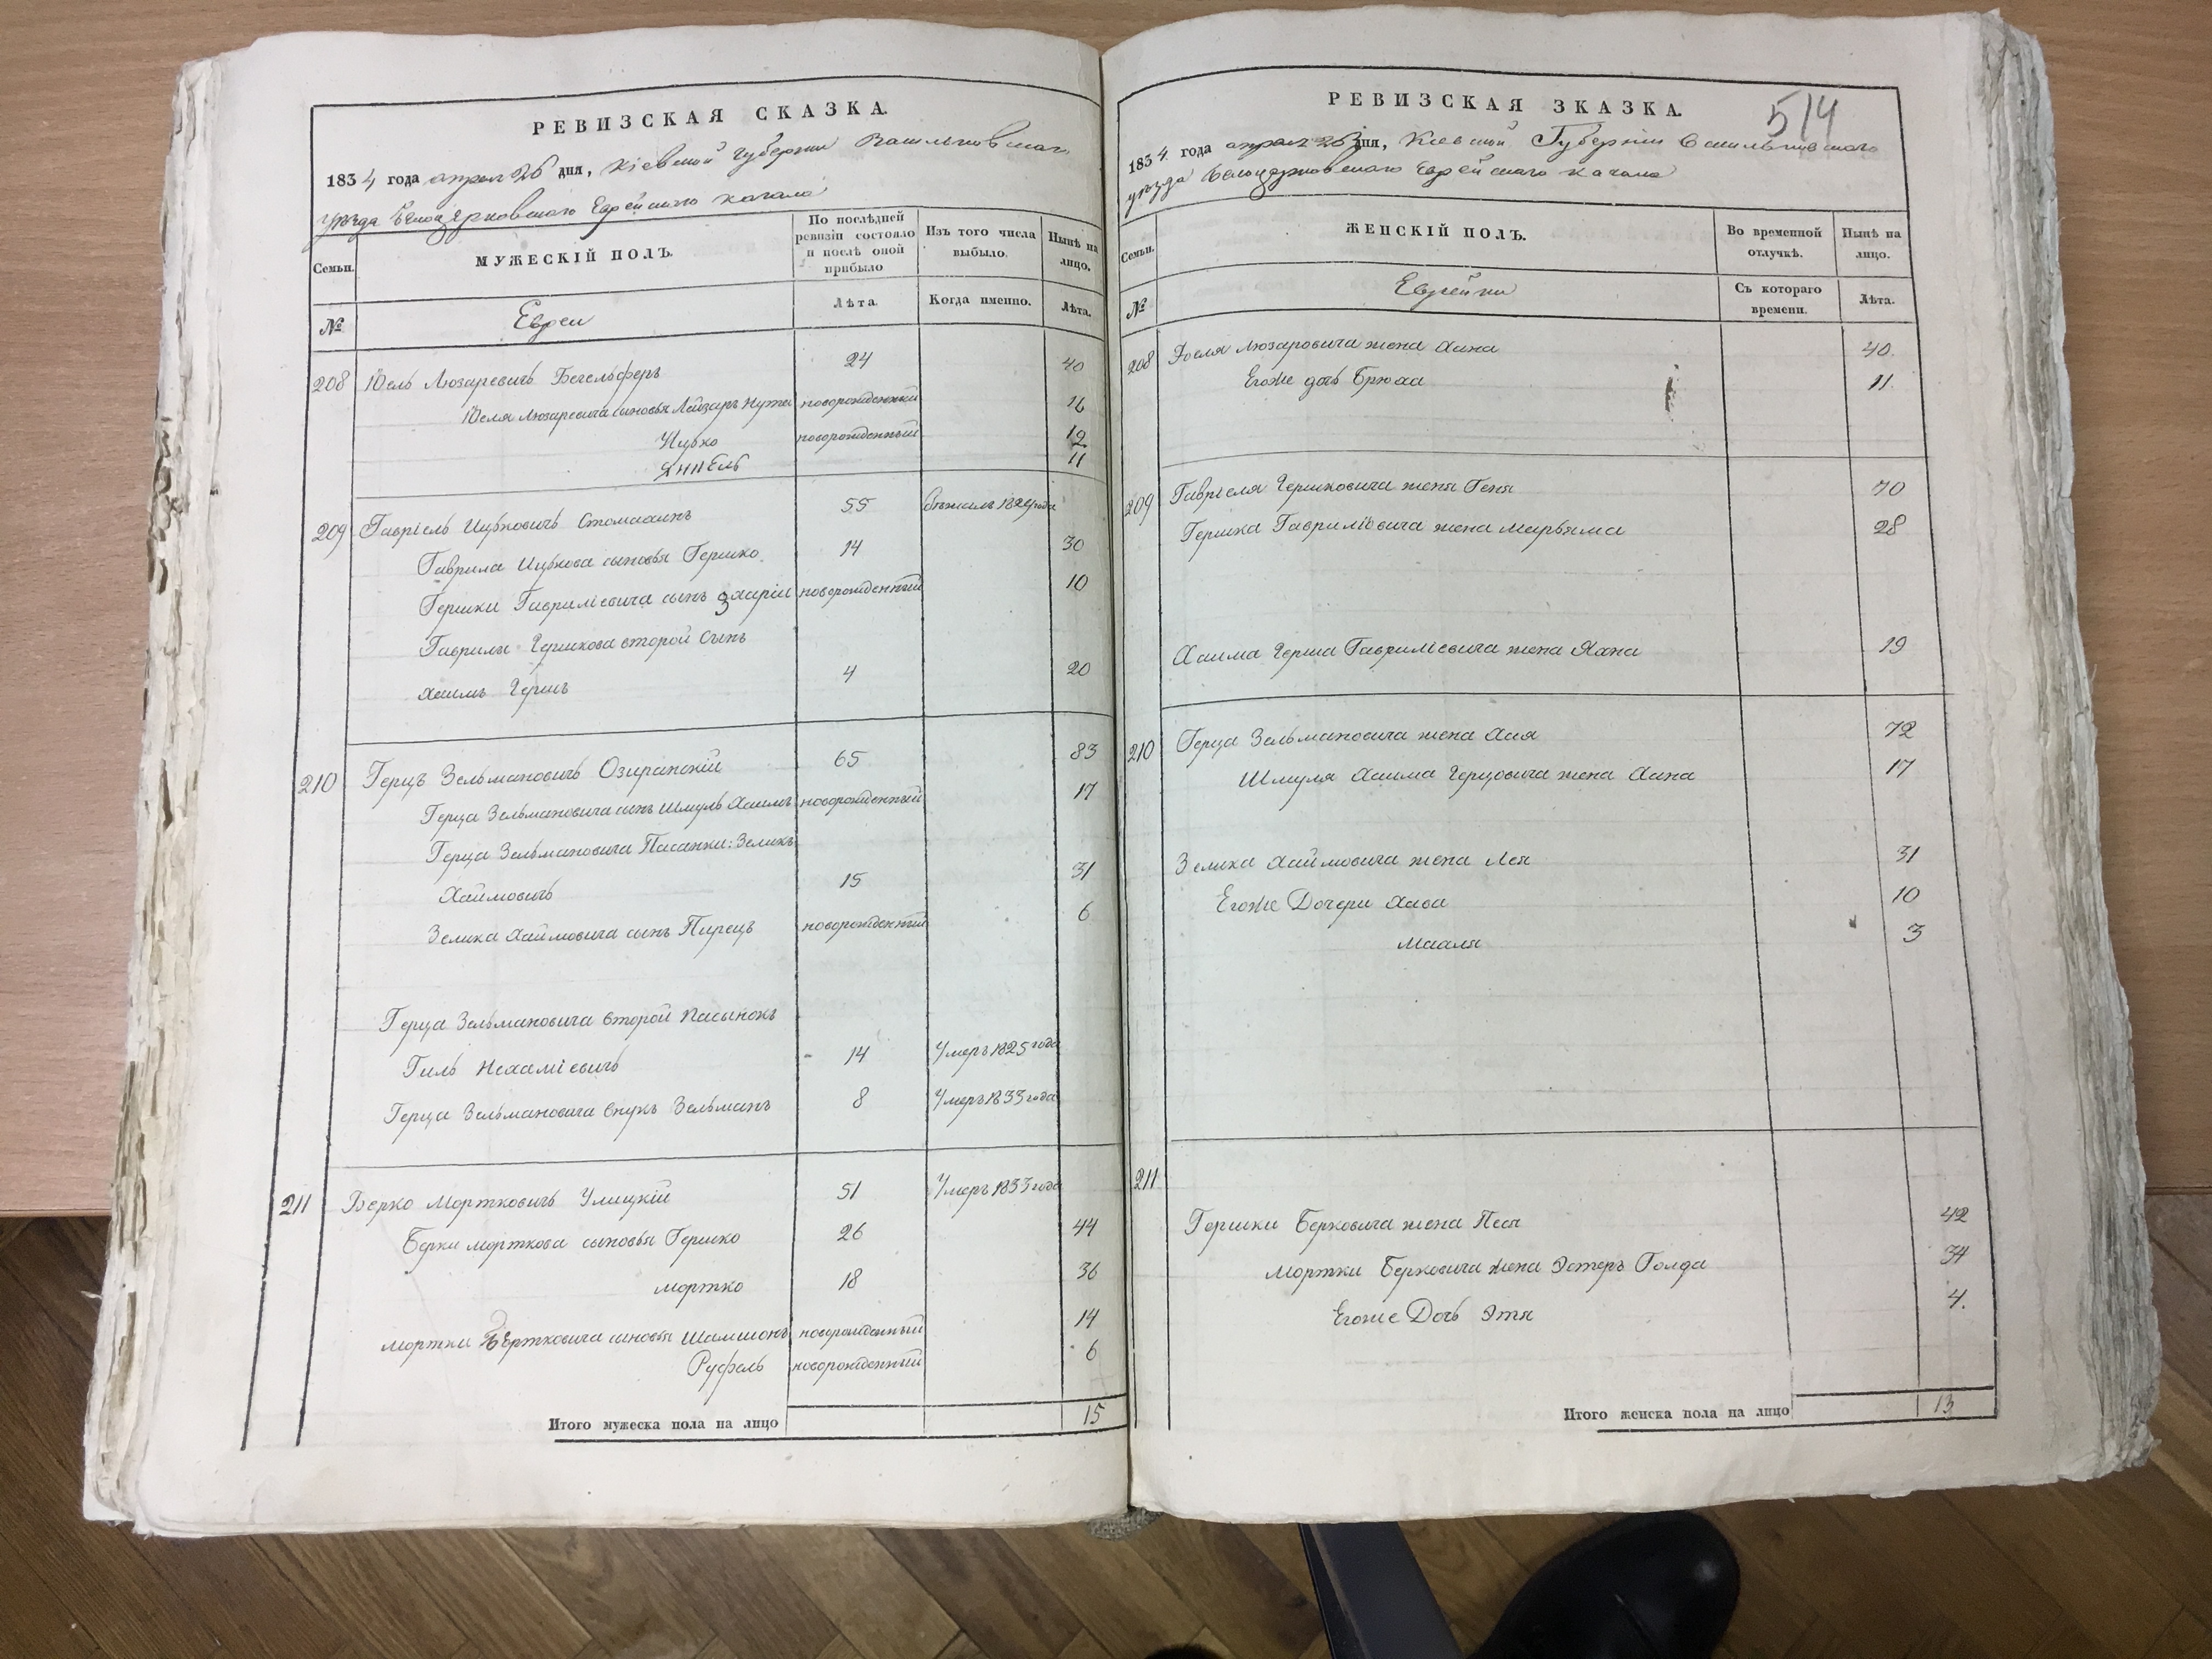 РЕВИЗСКАЯ СКАЗКА.
1834 года апреля 26 дня, Кіевской Губерніи Васильковскаго
уѣзда Белоцерковскаго Еврейского кагала
Семьи. МУЖЕСКІЙ ПОЛЪ. По послѣдней ревизіи состояло и послѣ оной прибыло Изъ того числа выбыло. Нынѣ на лицо.
№ Евреи Лѣта. Когда именно. Лѣта.
208 Іосль Люзаревичъ 24 40
Люзаревича сыновья Лейзаръ новорожденный 16
Ицько новорожденный 12
Янкель 11
209 Гавріель Ицьковичъ 55 1829 года
Гаврила Ицькова сыновья Гершко 14 30
Гершки Гавриліевича сынъ Захарій новорожденный 10
Гаврилы Гершкова второй Сынъ
Хаимъ Гершъ 4 20
210 Герцъ Зельмановичъ Озиранскій 65 83
Герца Зельмановича сынъ Шмуль Хаимъ новорожденный 17
Герца Зельмановича Пасанки: Зеликъ
Хаймовичъ 15 31
Зелика Хаймовича сынъ Пирецъ новорожденный 6
Герца Зельмановича второй Пасынокъ
Гиль Нехаміевичъ 14 Умеръ 1825 года
Герца Зельмановича внукъ Зельманъ 8 Умеръ 1833 года
211 Берко Мортковичъ Улицкій 51 Умеръ 1833 года
Берки Морткова сыновья Гершко 26 44
Мортко 18 36
Мортки сыновья Шамшонъ новорожденный 14
Руфель новорожденный 6
Итого мужеска пола на лицо 15
РЕВИЗСКАЯ ЗКАЗКА. 514
1834. года апреля 26 дня, Кіевской Губерніи Васильковскаго
уѣзда Белоцерковскаго Еврейскаго кагала
Семьи. ЖЕНСКІЙ ПОЛЪ. Во временной отлучкѣ. Нынѣ на лицо.
№ Еврейки Съ котораго времени. Лѣта.
208 Люзаровича жена Хана 40.
Егоже дочь Брюха 11.
209 Гавріеля Гершковича жена Геня 70
Гершка Гавриліовича жена Марьяма 28
Хаима Герша Гавриліевича жена Хана 19
210 Герца Зельмановича жена Хая 72
Шмуля Хаима Герцовича жена Хана 17
Зелика Хаймовича жена Лея 31
Егоже Дочери Хава 10
Махля 3
211
Гершки Берковича жена Песя 42
Мортки Берковича жена Эстеръ Голда 34
Егоже Дочь Этя 4.
Итого женска пола на лицо 13